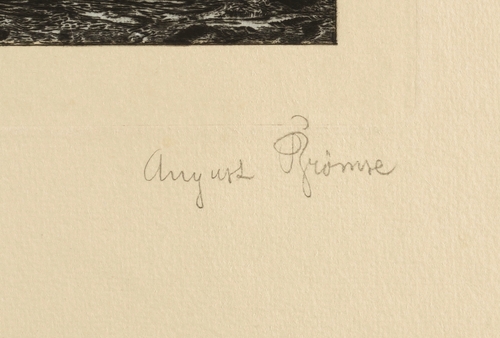 August Brömse